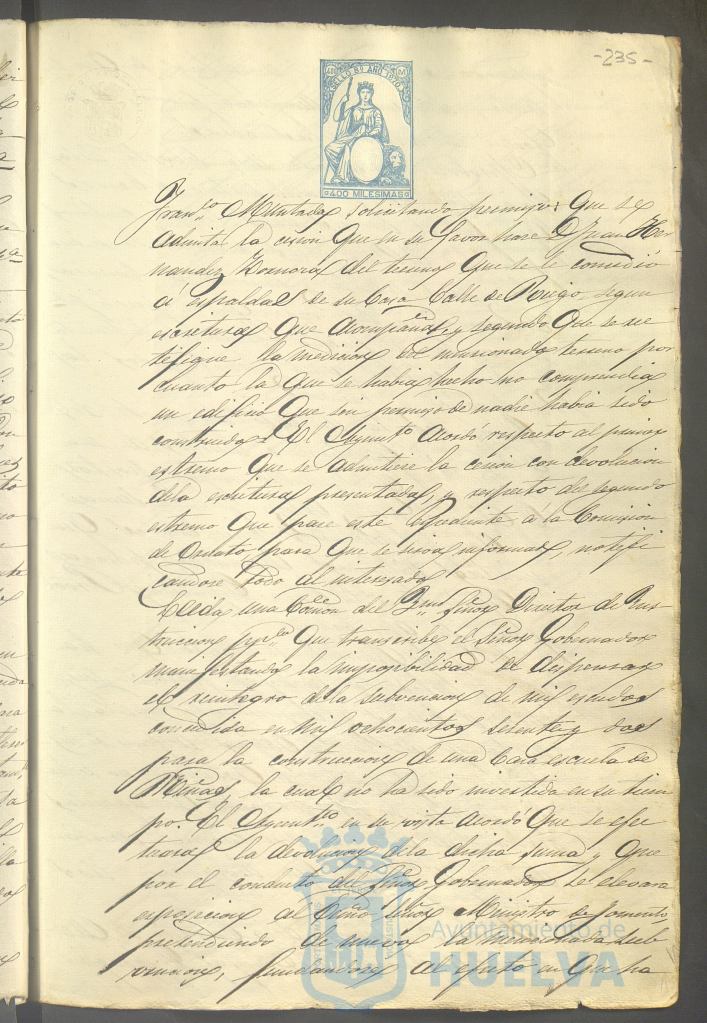 -235-
SELLO 8º AÑO 1870
400 MILESIMAS
Fran.co Muntada solicitando primero: Que se
admita la cesion Que en su favor hace D. Juan Her
nandez del terreno Que se le concedió
á espaldas de su Casa Calle de Riego, segun
escrituras Que acompaña, y segundo Que se rec
tifique la medicion del mencionado terreno por
cuanto la Que se habia hecho no comprendia
un edificio Que sin permiso de nadie habia sido
construido. El Ayunt.o acordó respecto al primer
estremo Que se admitiese la cesion con devolucion
de la escritura presentada, y respecto del segundo
estremo Que pase este Espediente á la Comision
de Ornato para Que se sirva informar, notifi
candose todo al interesado.
Leida una Com.on del Yltmo Señor Director de Yns
truccion pp.ca Que transcribe el Señor Gobernador
manifestando la imposibilidad de dispensar
el reintegro de la subvencion de mil escudos
concedida en mil ochocientos setenta y dos
para la construccion de una Casa escuela de
Niñas, la cual no ha sido invertida en su tiem
po. El Ayunt.to en su vista acordó Que se efec
tuara la devolucion de la dicha suma y Que
por el conducto del Señor Gobernador se elevara
esposicion al Señor Ministro de fomento,
pretendiendo de nuevo la mencionada sub
vencion, fundandose al efecto en Que ha
Ayuntamiento de
HUELVA